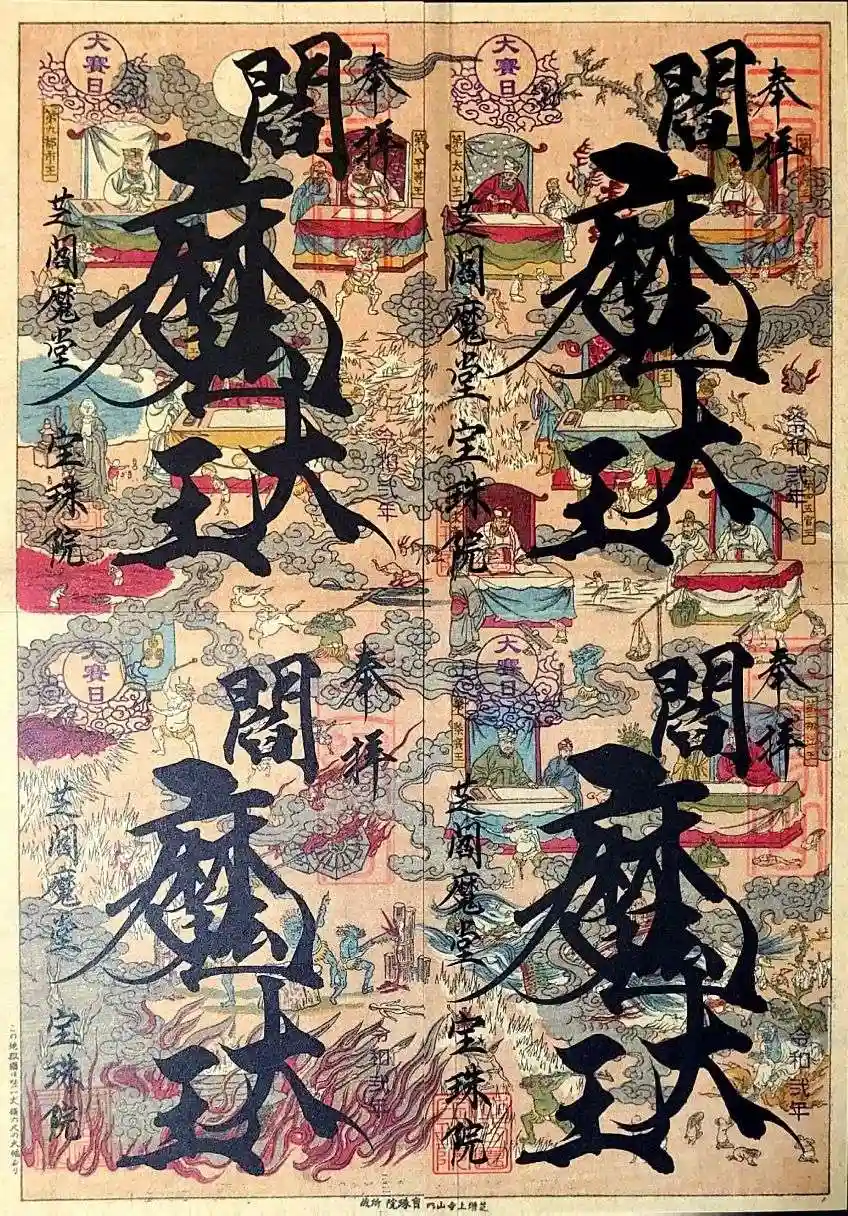 奉拝
閻魔大王
令和弐年
大賽日
芝閻魔堂 宝珠院
奉拝
閻魔大王
令和弐年
大賽日
第九都市王
芝閻魔堂 宝珠院
奉拝
閻魔大王
令和弐年
大賽日
芝閻魔堂 宝珠院
奉拝
閻魔大王
令和弐年
大賽日
芝閻魔堂 宝珠院
芝増上寺山内 宝珠院 所蔵